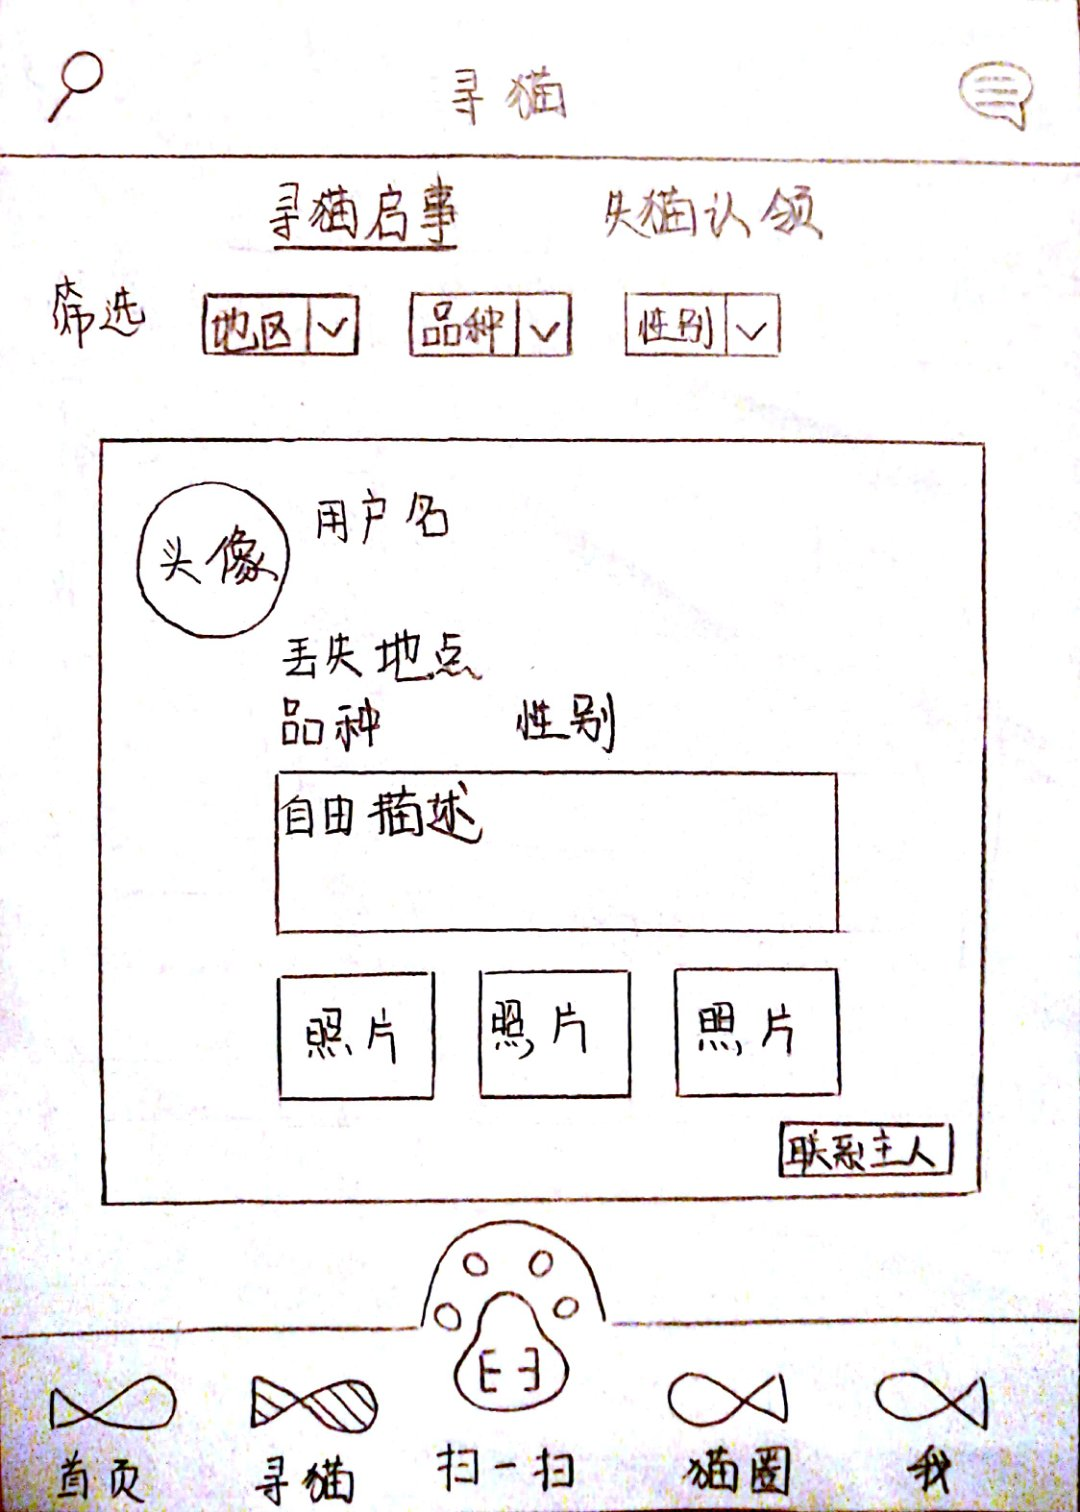 寻猫
寻猫启事 失猫认领
筛选 地区 品种 性别
头像 用户名
丢失地点
品种 性别
自由描述
照片 照片 照片
联系主人
首页 寻猫 扫一扫 猫圈 我